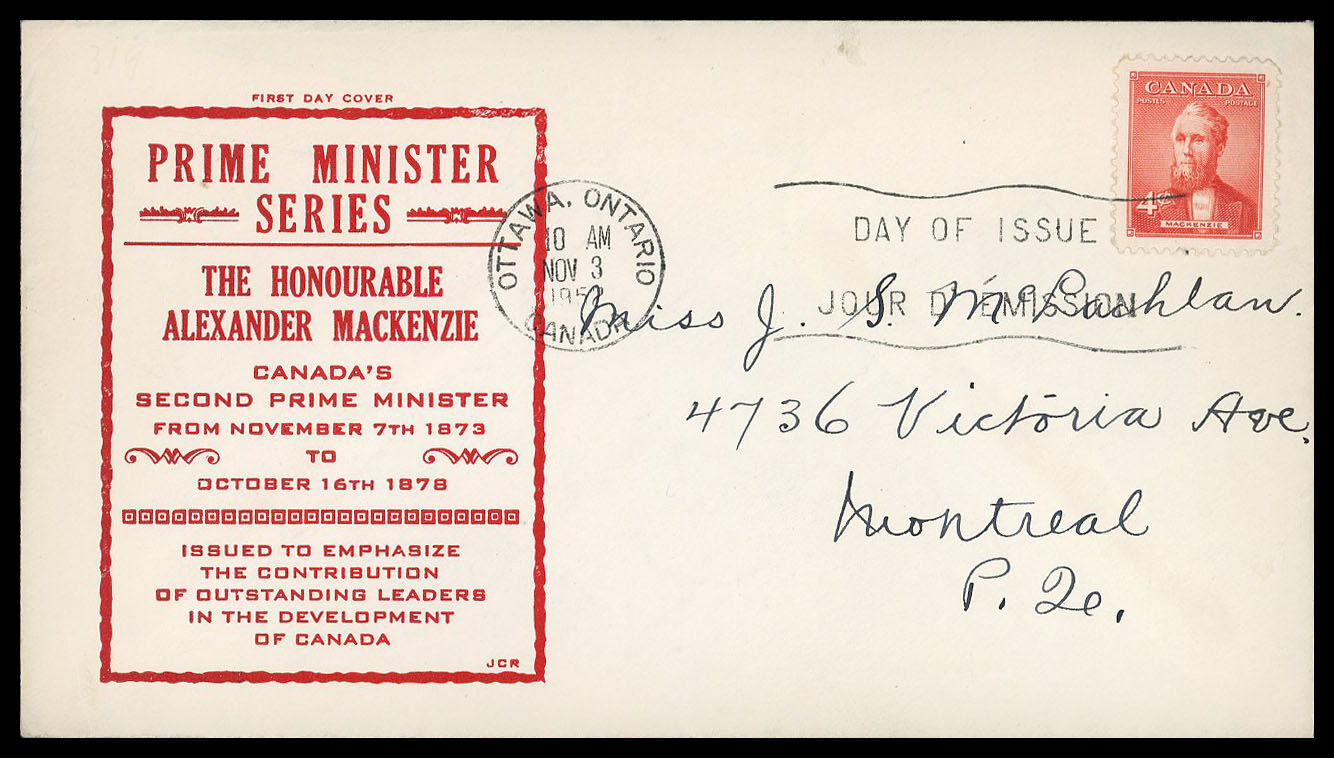 FIRST DAY COVER
PRIME MINISTER
SERIES
THE HONOURABLE
ALEXANDER MACKENZIE
CANADA'S
SECOND PRIME MINISTER
FROM NOVEMBER 7TH 1873
TO
OCTOBER 16TH 1878
ISSUED TO EMPHASIZE
THE CONTRIBUTION
OF OUTSTANDING LEADERS
IN THE DEVELOPMENT
OF CANADA
JCR
OTTAWA, ONTARIO
10 AM
NOV 3
CANADA
DAY OF ISSUE
JOUR D'ÉMISSION
CANADA
POSTES POSTAGE
4¢
MACKENZIE
Miss J. S. McLauchlan.
4736 Victoria Ave.
Montreal
P. Qe.